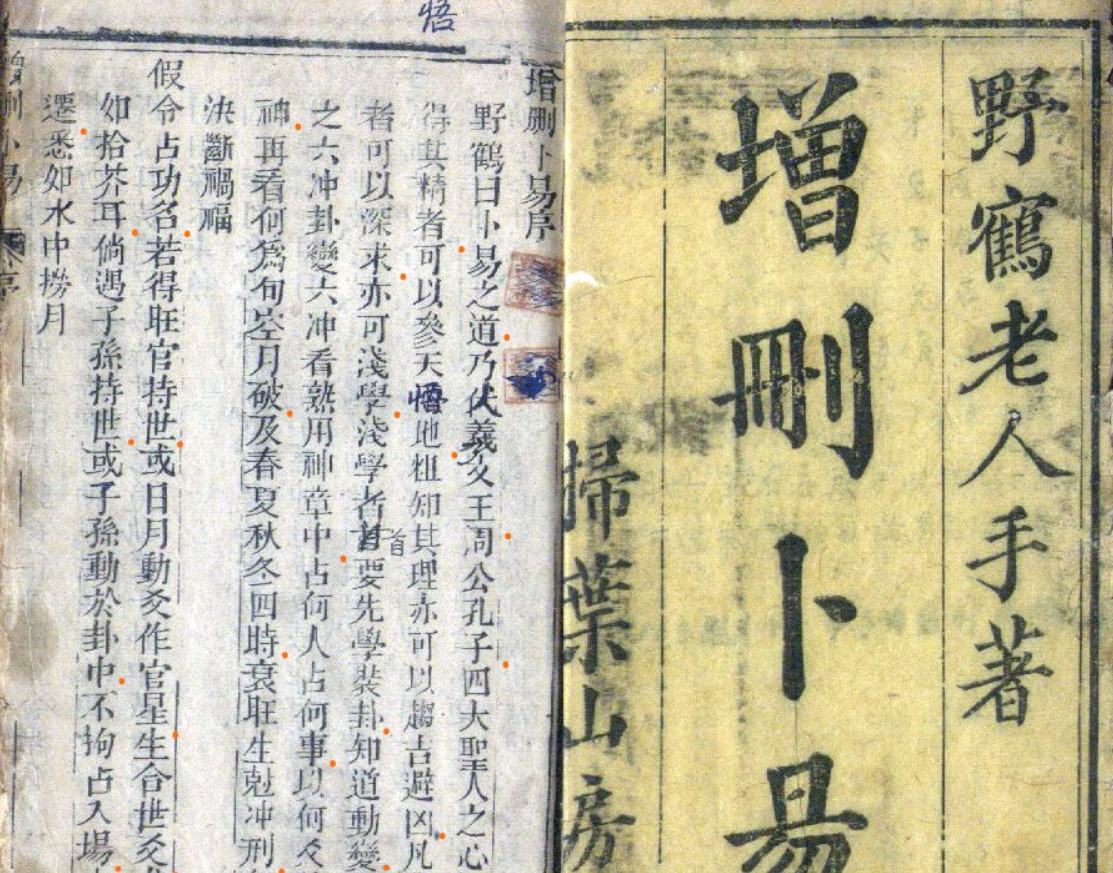 野鶴老人手著
增刪卜易
掃葉山房
悟
增刪卜易序
野鶴曰卜易之道乃伏羲文王周公孔子四大聖人之心
得其精者可以參天悟地粗知其理亦可以趨吉避凶凡
者可以深求亦可淺學淺學者首要先學裝卦知道動變
首
之六冲卦變六冲看熟用神章中占何人占何事以何爻
神再看何爲旬空月破及春夏秋冬四時衰旺生尅冲刑
決斷禍福
假令占功名若得旺官持世或日月動爻作官星生合世爻
如拾芥耳倘遇子孫持世或子孫動於卦中不拘占入場
遷悉如水中撈月
增刪卜易 序